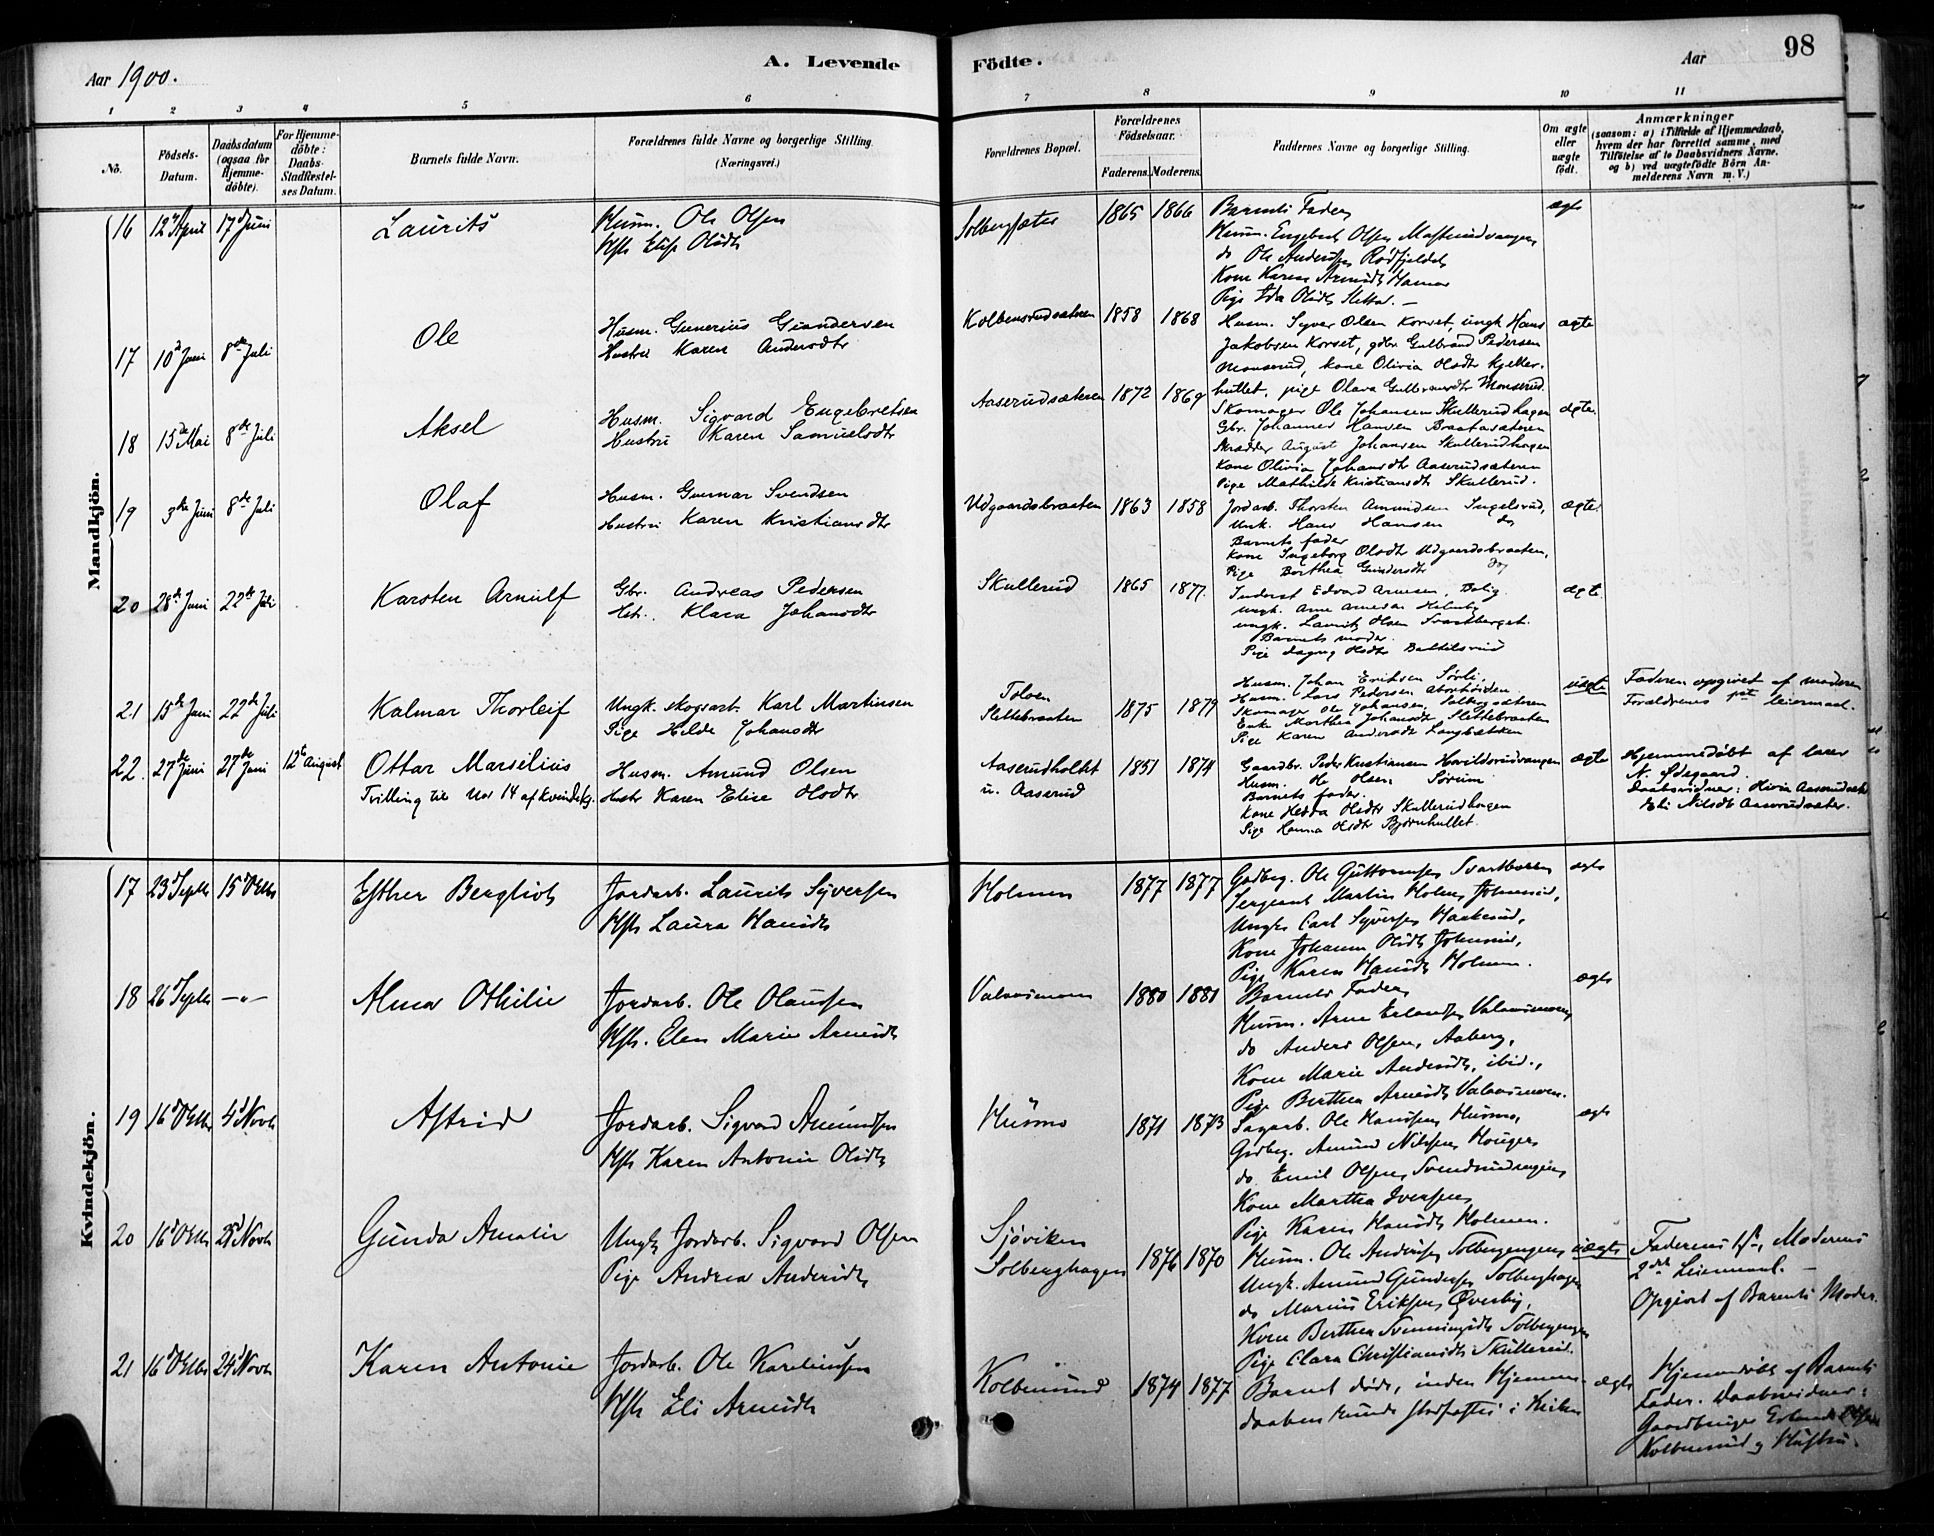 Aar 1900.
A. Levende Födte.
Aar
98
1 2 3 4 5 6 7 8 9 10 11
No.
Födsels-Datum.
Daabsdatum (ogsaa for Hjemme-döbte).
For Hjemme-döbte: Daabs-Stadfæstelses Datum.
Barnets fulde Navn.
Forældrenes fulde Navne og borgerlige Stilling. (Næringsvei.)
Forældrenes Bopæl.
Forældrenes Födselsaar.
Faderens. Moderens.
Faddernes Navne og borgerlige Stilling.
Om ægte eller uægte födt.
Anmærkninger
(saasom: a) i Tilfælde af Hjemmedaab, hvem der har forrettet samme, med Tilföielse af to Daabsvidners Navne. og b) ved uægtefödte Börn Anmelderens Navn m. V.)
Mandkjön.
16 12 April 17 Juni Laurits Husm. Ole Olsen 1865 1866 Barnets Fader ægte
Husm. Engebret Olsen
do Ole Andersen Rødfjeldet
Kone Karen Arnesdt Hamar
Pige Ida Olsdt Sletta. —
17 10de Juni 8de Juli Ole Husm. Gunerius Gundersen
Hustru Karen Andersdtr
Kolbensrudsætren 1858 1868 Husm. Syver Olsen Korset, ungk Hans ægte
Jakobsen Korset, gdbr Gulbrand Pedersen
Monserud, kone Olivia Olsdtr Kjeller-
hullet, pige Olava Gulbransdtr Monserud.
18 15de Mai 8de Juli Aksel Husm. Sigvard Engebretsen
Hustru Karen Samuelsdtr
Aaserudsæteren 1872 1869 Skomager Ole Johansen Skullerudhagen ægte.
Gbr. Johannes Hansen Braatasæteren
Skrædder August Johansen Skullerudhagen
Kone Olivia Johansdtr Aaserudsæteren
Pige Mathilde Kristiansdtr Skullerud.
19 3die Juni 8de Juli Olaf Husm. Gunnar Svendsen
Hustru Karen Kristiansdtr
Udgaardsbraaten 1863 1858 Jordarb. Thorsten Amundsen Ingelsrud, ægte.
Ungk. Hans Hansen do
Barnets fader
Kone Ingeborg Olsdtr Udgaardsbraaten,
Pige Berthea Gundersdtr do
20 28de Juni 22de Juli Karsten Arnulf Gbr. Andreas Pedersen
Hstr. Klara Johansdtr
Skullerud 1865 1877. Inderst Edvard Arnesen, Bolig. ægte.
Ungk. Arne Arnesen
Ungk. Laurits Olsen Svartberget.
Barnets moder.
Pige Dagny Olsdtr
21 15de Juni 22de Juli Kalmar Thorleif Ungk. skogsarb. Karl Martinsen
Pige Hilda Johansdtr
Slettebraaten 1875 1879 Husm. Johan Eriksen Sørli,
Husm. Lars Pedersen
Skomager Ole Johansen, Solbergsæteren
Enke Marthea Johansdtr Slettebraaten
Pige Karen Andersdtr Langbakken
uægte Faderen opgivet af moderen
Forældrenes 1ste leiermaal.
22. 27de Juni 27de Juni 12te August Ottar Marselius
Tvilling til No 14 af kvindekj. Husm. Amund Olsen
Hustr Karen Elise Olsdtr
Aaserudholtet
u. Aaserud 1851 1874 Gaardbr. Peder Kristiansen Hovildsrudvangen ægte
Husm. Ole Olsen Sørum
Barnets fader.
Kone Hedda Olsdtr Skullerudhagen
Pige Hanna Olsdtr Bjørnhullet.
Hjemmedøbt af lærer
N. Ødegaard.
Daabsvidner:
Eli Nilsdt Aaserudsæter.
Kvindekjön.
17 23 Septbr 15 Oktbr Esther Bergliot Jordarb. Laurits Syversen
Hst. Laura Hansdtr
Holmen 1877 1877 Gdbeg. Ole Guttormsen ægte
Sergeant Martin Holmen,
Ungk. Carl Syversen
Kone Johanna Olsdtr
Pige Karen Hansdtr Holmen.
18 26 Septbr —"— Alma Othilie Jordarb. Ole Olaussen
Hst. Elen Marie Arnesdtr
1880 1881 Barnets Fader, ægte
Husm. Arne Erlandsen
do Anders Olsen, Aaberg,
Kone Marie Andersdt, ibid.,
Pige Berthea Arnesdt
19 16 Oktbr 4 Novb Astrid Jordarb. Sigvard Amundsen
Hst. Karen Antonie Olsdtr
Husmo 1871 1873 Sagarb. Ole Hansen, Husmo, ægte
Gdbeg. Amund Nilssen
do Emil Olsen
Kone Marthea Iversen
Pige Karen Hansdt Holmen.
20 16 Oktbr 25 Novb Gunda Amalie Ungk. Jordarb. Sigvard Olsen
Pige Andrea Andersdtr
Sjøviken
Solberghagen 1876 1870 Husm. Ole Andersen Solbergengen uægte
Ungk. Amund Gundersen Solberghagen
do Marius Eriksen Øverby,
Kone Berthea Svenningsdt Solbergengen
Pige Clara Christiansdt Skullerud.
Faderens 1ste, Moderens
2det Leiermaal. —
Opgivet af Barnets Moder.
21 16 Oktbr 24 Novb Karen Antonie Jordarb. Ole Karelinsen
Hst. Eli Arnesdtr
1874 1877 Barnet døde, inden Hjemme- ægte
daaben kunde stadfæstes i Kirken
Hjemmedøbt af Barnets
Fader. Daabsvidner:
Gaardbruger Erland Olsen
og Hustru.